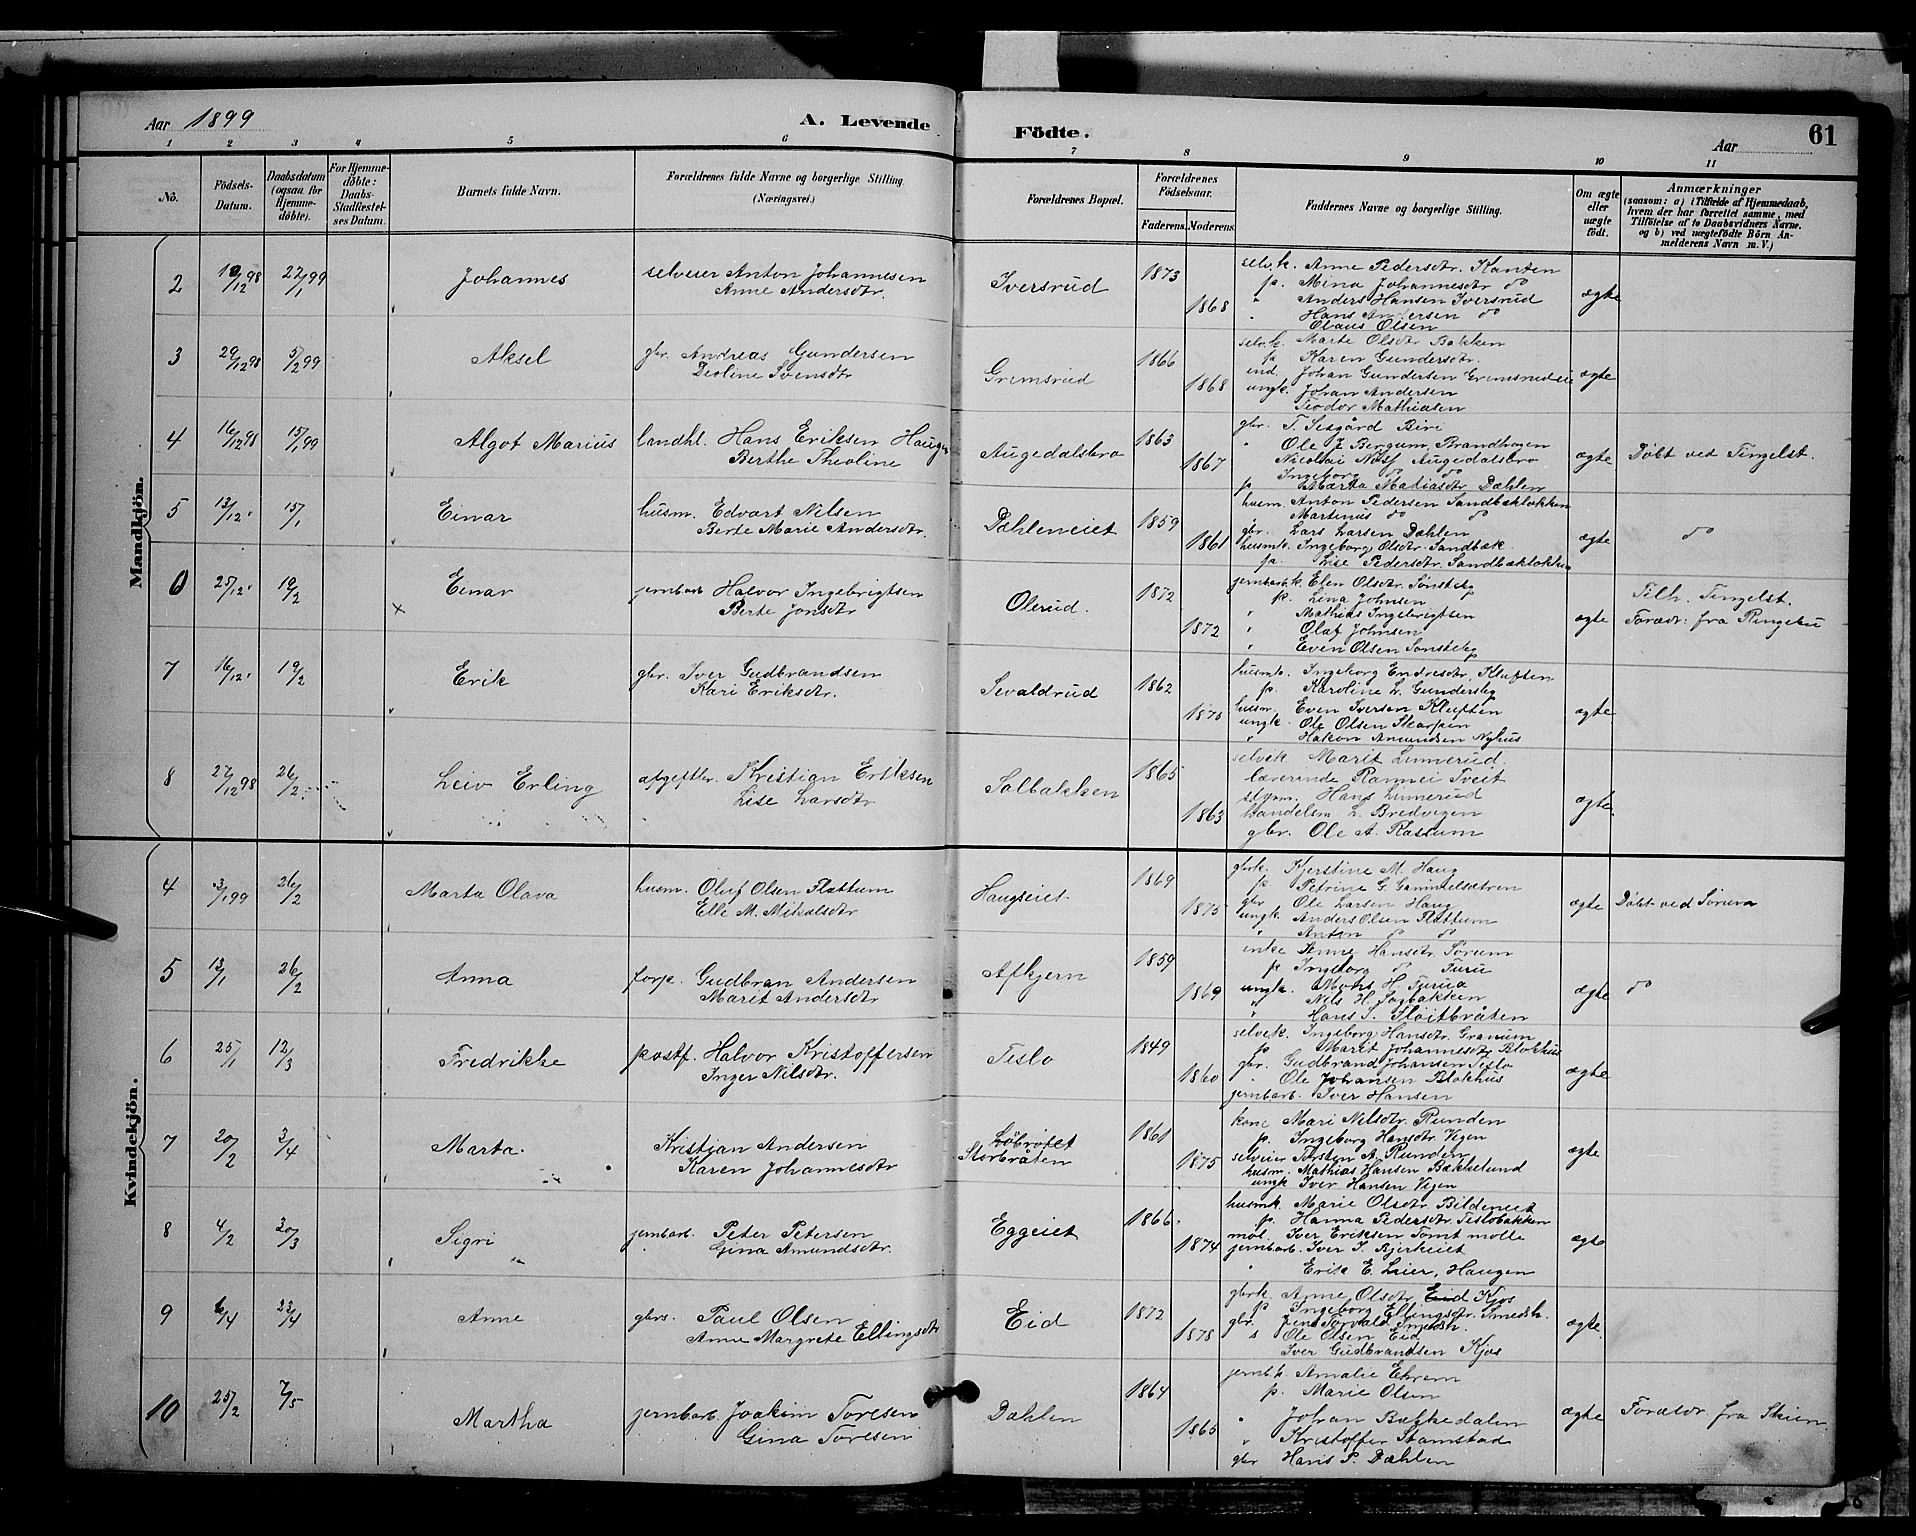 Aar 1899
A. Levende
Födte.
Aar
61
1 2 3 4 5 6 7 8 9 10 11
No.
Födsels-Datum.
Daabsdatum (ogsaa for Hjemme-döbte).
For Hjemme-döbte: Daabs-Stadfæstel-ses Datum.
Barnets fulde Navn.
Forældrenes fulde Navne og borgerlige Stilling. (Næringsvei.)
Forældrenes Bopæl.
Forældrenes Födselsaar.
Faderens. Moderens.
Faddernes Navne og borgerlige Stilling.
Om ægte eller uægte födt.
Anmærkninger
(saasom: a) i Tilfælde af Hjemmedaab,
hvem der har forrettet samme, med
Tilföielse af to Daabsvidners Navne.
og b) ved uægtefödte Börn An-
melderens Navn m. V.)
Mandkjön.
2 10/12 98 22/1 99 Johannes selveier Anton Johannesen
Anne Andersdtr.
Iversrud 1873 1868
selv.k. Anne Pedersdtr. Kanten
p. Mina Johannesdtr do
" Anders Hansen Iversrud
" Hans Andersen do
Olaus Olsen
ægte
3 29/12 98 5/2 99 Aksel gbr. Andreas Gundersen
Deoline Svensdtr
Grimsrud 1866 1868
selv.k. Marte Olsdtr Bakken
p Karen Gundersdtr.
ind. Johan Gundersen Grimsrudeie
ungk. Johan Andersen
Teodor Mathiasen
ægte
4 16/12 98 15/1 99 Algot Marius landhl. Hans Eriksen Haugen
Berthe Theoline
Augedalsbro 1863 1867
gbr. T. Sesgård Biri
" Ole J Bergum, Brandhagen
Nicolai Næss Augedalsbro
Ingeborg do do
p Marta Matiasdtr Dæhlen
ægte
Döbt ved Tingelst.
5 13/12 " 15/1 Einar husm. Edvart Nilsen
Berte Marie Andersdtr.
Dæhleneiet 1859 1861
husm Anton Pedersen Sandbækløkken
Martinus do do
gbr. Lars Larsen Dæhlen
husmk. Ingeborg Olsdtr. Sandbæk
pa. Lise Pedersdtr. Sandbækløkken
ægte do
6 25/12 " 19/2 Einar jernbarb Halvor Ingebrigtsen
Berte Jonsdtr
Olerud. 1872 1872
jernbarb.k. Elen Olsdtr. Sønsteby
p. Lina Johnsen
" Mathias Ingebrigtsen
" Olaf Johnsen
" Even Olsen Sønsteby
ægte
Tilh. Tingelst.
Forædr. fra Ringebu
7 16/12 " 19/2 Erik gbr. Iver Gudbrandsen
Kari Eriksdtr.
Sevaldrud 1862 1875
husmk. Ingeborg Endresdtr, Kluften
p. Karoline L. Gundersby
husm. Even Iversen Kluften
ungk. Ole Olsen Skarpen
" Håkon Amundsen Nyhus
ægte
8 27/12 98 26/2 Leiv Erling afgiftbr. Kristian Eriksen
Lise Larsdtr
Solbakken 1865 1863
selvek Marit Linnerud.
lærerinde Rannei Tveit
Hans Linnerud
handelsm L. Bredvigen
gbr. Ole A. Rassum
ægte
Kvindekjön.
4 13/1 99 26/2 Marta Olava husm. Oluf Olsen Flattum
Elle M. Mikalsdtr
Haugseiet 1869 1875
gbrk. Kjerstine M. Haug
p. Petrine G. Gammelsætren
gbr Ole Larsen Haug
ungk. Anders Olsen Flattum
" Anton do do
ægte Döbt ved Sørum
5 12/1 26/2 Anna forp. Gudbran Andersen
Marit Andersdtr
Afkjern 1859 1869
enke Anne Hansdtr Sørum
p Ingeborg do
ungk. Mons H. Turua
" Nils H. Sagbakken
" Hans J. Fløitbråten
ægte do
6 25/1 12/3 Fredrikke postf. Halvor Kristoffersen
Inger Nilsdtr.
Teslo 1849 1860
selvek. Ingeborg Hansdtr Granum
p Marit Johannesdtr Blokhus
gbr. Gudbrand Johansen Teslo
" Ole Johansen Blokhus
jernbarb. Iver Hansen
ægte
7 20/2 3/4 Marta. Kristjan Andersen
Karen Johannesdtr
Løbrøtet
Storbråten 1861 1875
kone Mari Nilsdtr. Runden
p. Ingeborg Hansdtr Vigen
selveier Torsten A. Runden
husm. Mathias Hansen Bækkelund
ungk Iver Hansen Vigen
ægte
8 4/2 30/3 Sigri jernbarb. Peter Petersen
Gina Amundsdtr.
Eggeiet 1866 1874
husmk. Marie Olsdtr Bildeneiet
p. Hanna Pedersdtr Teslobakken
møl. Iver Eriksen Tomt mølle
jernbarb. Iver I. Bjerkeiet
" Erik E. Leier, Haugen
ægte
9 6/4 23/4 Anne gbrs. Paul Olsen
Anne Margrete Ellingsdtr
Eid 1872 1878
gbrk. Anne Olsdtr Eid Kjos
p Ingeborg Ellingsdtr. Smedsh.
gbr. Jens Torvald Smedsh.
s Ole Olsen Eid
Iver Gudbrandsen Kjos
ægte
10 25/2 7/5 Martha jernbarb Joakim Toresen
Gina Toresen
Dæhlen 1864 1865
jernb.k. Amalie Ehrem
p. Marie Olsen
" Johan Bækkedalen
" Kristoffer Stamstad
gbr Hans P. Dæhlen
ægte Forældr. fra Skien